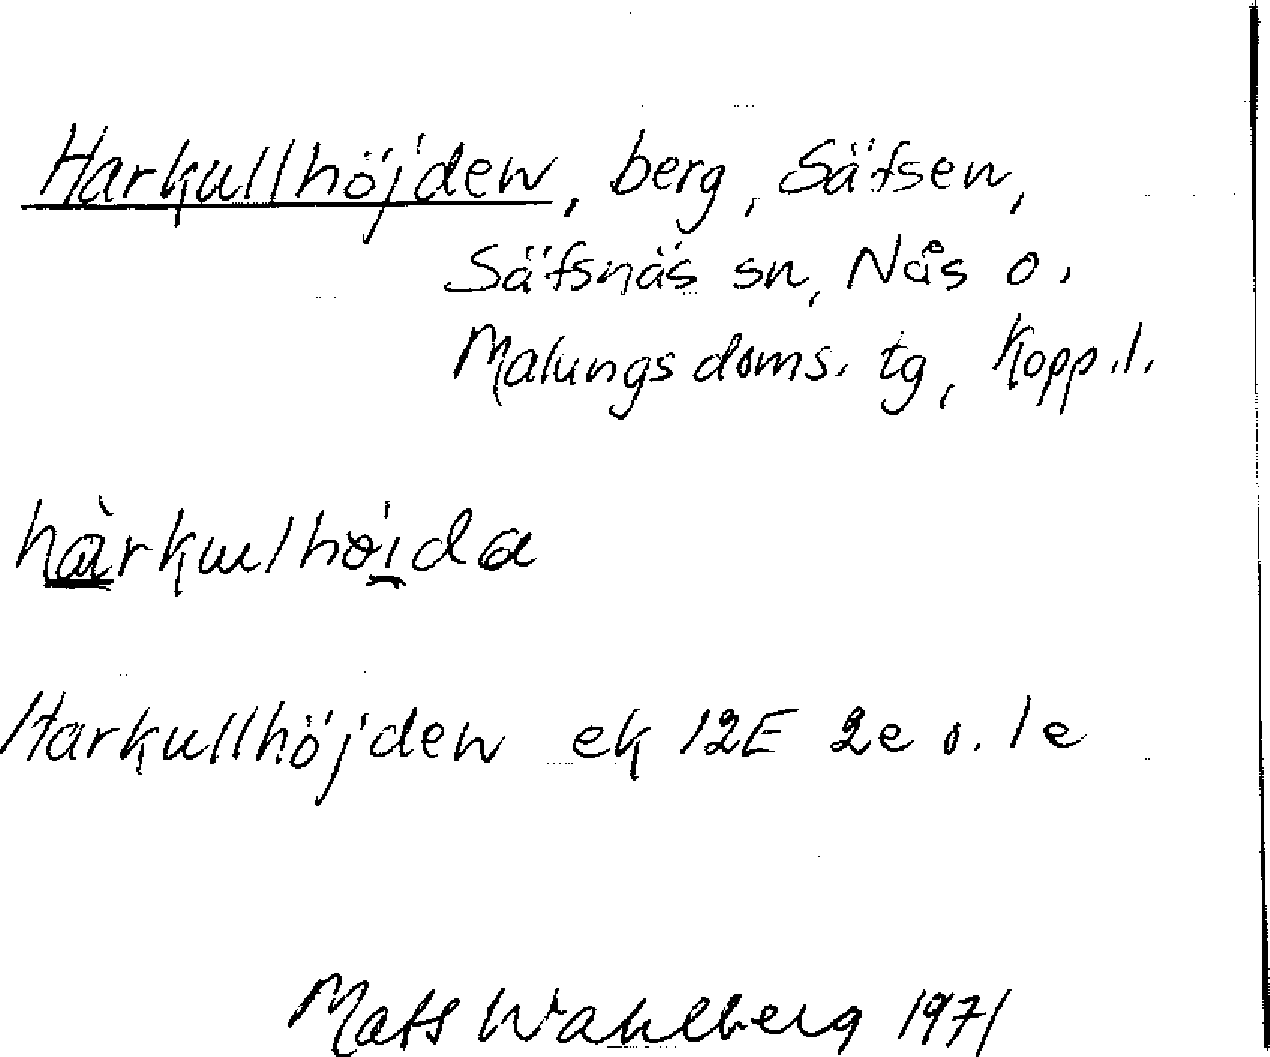 Harkullhöjden, berg, Säfsen,
Säfsnäs sn, Nås o.
Malungs doms. tg, Kopp.l.
hàrkulhöida
Harkullhöjden ek 12E 2e o. 1e
Mats Wahlberg 1971